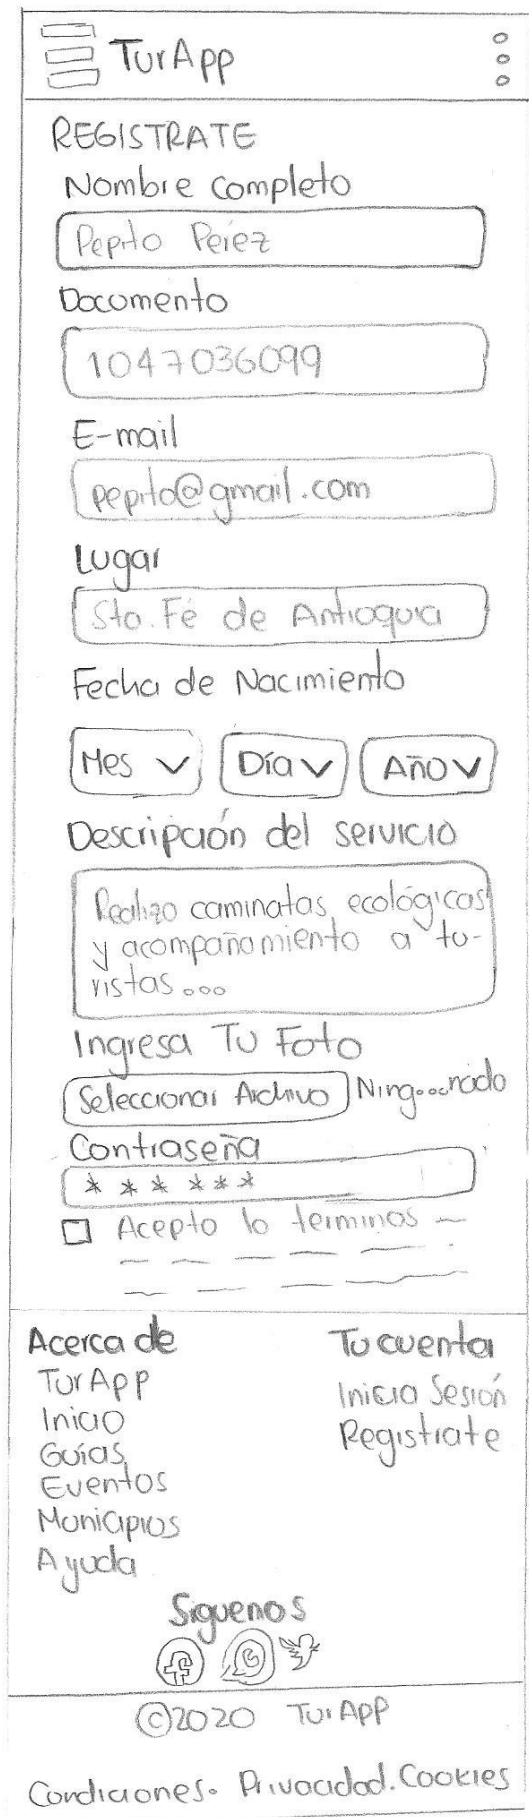 TurApp
REGISTRATE
Nombre completo
Pepito Perez
Documento
1047036099
E-mail
pepito@gmail.com
Lugar
Sta. Fé de Antioquia
Fecha de Nacimiento
Mes Día Año
Descripción del servicio
Realizo caminatas ecológicas
y acompañamiento a tu-
ristas...
Ingresa Tu Foto
Seleccionar Archivo Ning...nado
Contraseña
******
Acepto lo terminos
Acerca de Tu cuenta
TurApp Inicia Sesión
Inicio Registrate
Guías
Eventos
Municipios
Ayuda
Siguenos
©2020 TurApp
Condiciones. Privacidad. Cookies